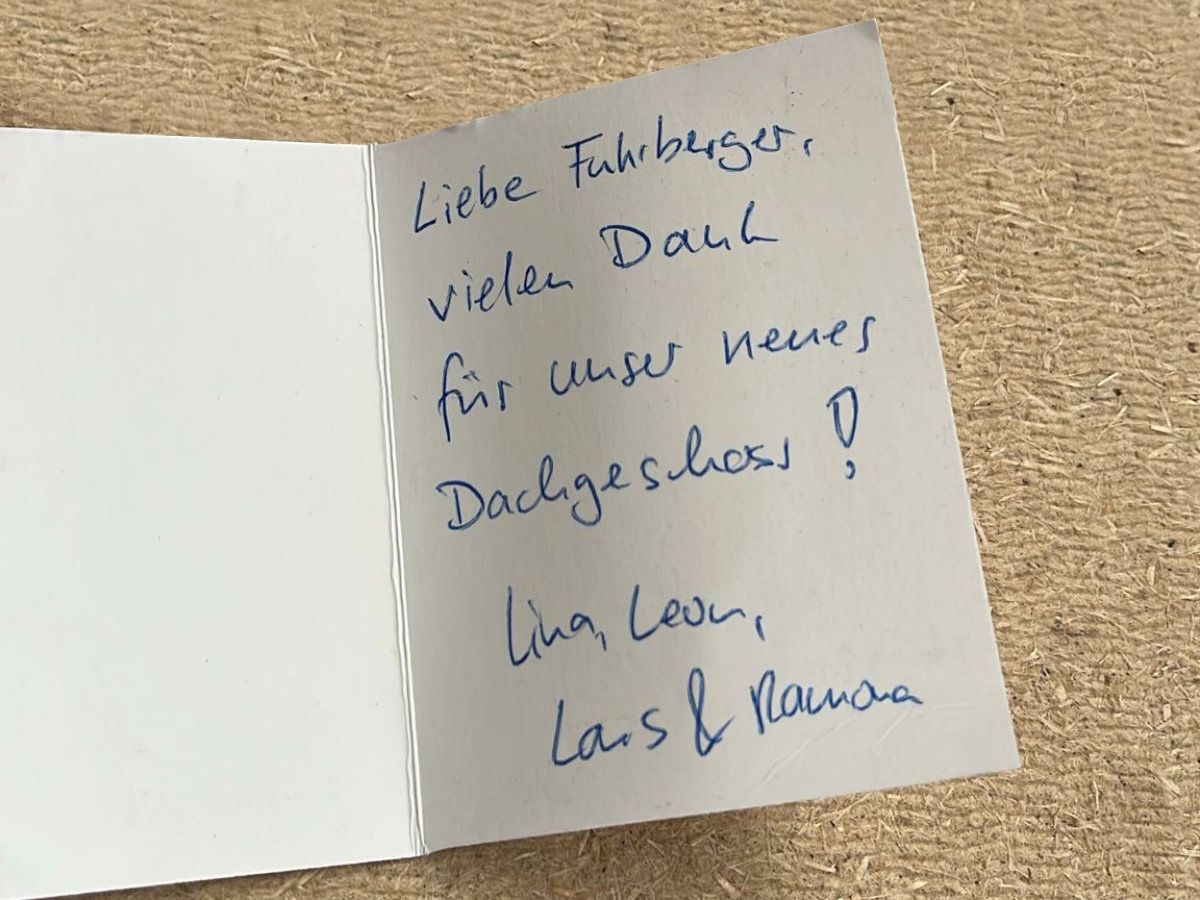 Liebe Fuhrberger,
vielen Dank
für unser neues
Dachgeschoss!
Lina, Leon,
Lars & Ramona